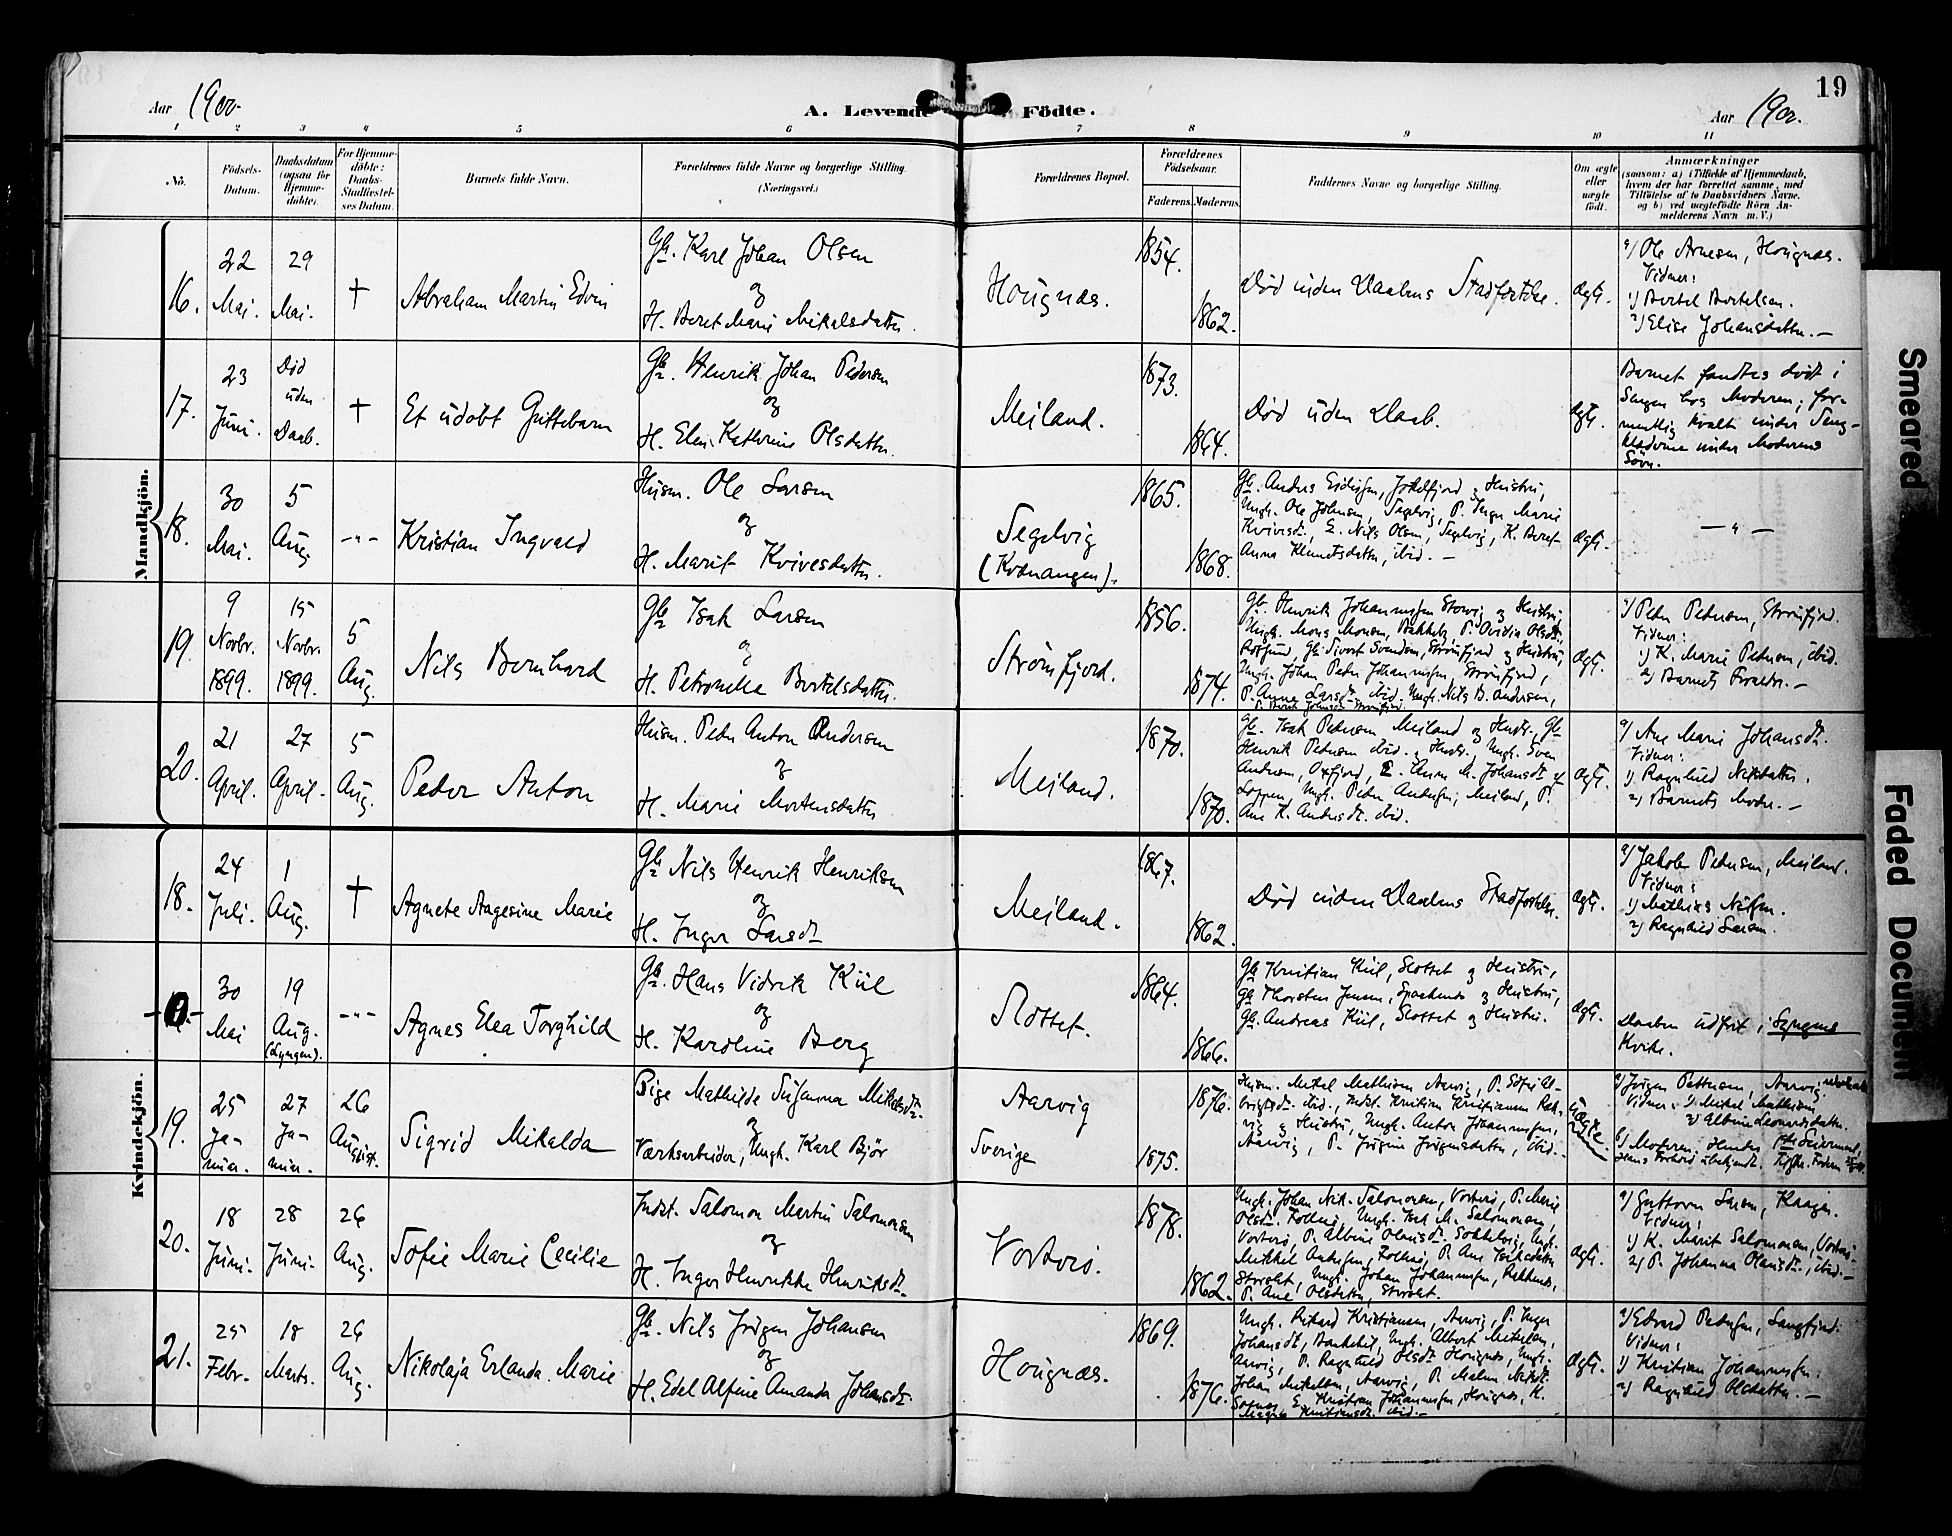 19
Aar 1900.
A. Levende Födte.
Aar 1900.
1 2 3 4 5 6 7 8 9 10 11
No.
Födsels-
Datum.
Daabsdatum
(ogsaa for
Hjemme-
döbte).
For Hjemme-
döbte:
Daabs-
Stadfæstel-
ses Datum.
Barnets fulde Navn.
Forældrenes fulde Navne og borgerlige Stilling
(Næringsvei.)
Forældrenes Bopæl.
Forældrenes
Födselsaar.
Faderens. Moderens.
Faddernes Navne og borgerlige Stilling.
Om ægte
eller
uægte
födt.
Anmærkninger
(saasom: a) i Tilfælde af Hjemmedaab,
hvem der har forrettet samme, med
Tilføielse af to Daabsvidners Navne,
og b) ved uægtefödte Börn An-
melderens Navn m. V.)
Mandkjön.
16.
22
Mai.
29
Mai.
†
Abraham Martin Edvin
Gb. Karl Johan Olsen
og
H. Beret Marie Mikalsdatter.
Hougnæs.
1854.
1862.
Død uden Daabens Stadfæstelse.
ægte.
a) Ole Arnesen, Hougnæs.
Vidner:
1) Bertel Bertelsen.
2) Elise Johansdatter.—
17.
23
Juni.
Død
uden
Daab.
†
Et udøbt Guttebarn
Gb. Henrik Johan Pedersen
og
H. Elen Kathrine Olsdatter.
Meiland.
1873.
1864.
Død uden Daab.
ægte.
Barnet fandtes dødt i
Sengen hos Moderen; for-
mentlig kvalt under Seng-
klæderne under Moderens
Søvn.
18.
30
Mai.
5
Aug.
-"-
Kristian Ingvald
Husm. Ole Larsen
og
H. Marit Kvivesdatter.
Segelvig
(Kvænangen).
1865.
1868.
Ungk. Ole Johnsen, Segelvig, P. Inger Marie
Nils Olsen, Segelvig, K. Beret
Anna Klemetsdatter, ibid.—
ægte.
— " —
19.
9
Novbr.
1899.
15
Novbr.
1899.
5
Aug.
Nils Bernhard
Gb. Isak Larsen
og
H. Petronelle Bertelsdatter.
Strømfjord.
1856.
1874.
Gb. Henrik Johannessen Storvig og Hustru,
Ungk. Mons Monsen, Bakkeby, P. Ovidia Olsdt.,
Gb. Sivert Svendsen, Strømfjord og Hustru,
Ungk. Johan Peder Johannessen, Strømfjord,
P. Anna Larsdt. ibid. Ungk. Nils B. Andersen,
ægte.
a) Peder Pedersen, Strømfjord.
Vidner:
1) K. Marie Pedersen, ibid.
2) Barnets Forældr.—
20.
21
April.
27
April.
5
Aug.
Peder Anton
Husm. Peder Anton Andersen
og
H. Marie Mortensdatter
Meiland.
1870.
1870.
Gb. Isak Pedersen Meiland og Hustr., Gb.
Henrik Pedersen ibid. & Hustr. Ungk. Sven
Andersen, Oxfjord, E. Anne M. Johansdt.
Loppen, Ungk. Peder Andersen, Meiland, P.
Ane K. Andersdt. ibid.
ægte.
a) Ane Marie Johansdt.
Vidner:
1) Ragnhild Nilsdatter.
2) Barnets Moder.—
Kvindekjön.
18.
24
Juli.
1
Aug.
†
Agnete Aagesine Marie
Gb. Nils Henrik Henriksen
og
H. Inger Larsdt.
Meiland.
1867.
1862.
Død uden Daabens Stadfæstelse.
ægte.
a) Jakob Pedersen, Meiland.
Vidner:
1) Mathias Nilsen.
2) Ragnhild Larsen.
30
Mai
19
Aug.
(Lyngen).
-"-
Agnes Elea Torghild
Gb. Hans Vidrik Kiil
og
H. Karoline Berg
Slottet.
1864.
1866.
Gb. Kristian Kiil, Slottet og Hustru,
Gb. Thorsten Jensen, Spaakenes og Hustru,
Gb. Andreas Kiil, Slottet og Hustru.
ægte.
Daaben udført i Lyngens
Kirke.
19.
25
Ja-
nuar.
27
Ja-
nuar.
26
August.
Sigrid Mikalda
Pige Mathilde Susanna Mikalsdt.
og
Værksarbeider, Ungk. Karl Bjør
Aarvig
Sverige
1876.
1875.
Husm. Mikal Mathisen Aarvig, P. Sofie Al-
brigtsdt. ibid., Indst. Kristian Kristiansen Rak-
vig & Hustru, Ungk. Anton Johannessen,
Aarvig, P. Jørgine Jørgensdatter, ibid.
uægte
a) Jørgen Pettersen, Aarvig
Vidner: 1) Mikal Mathisen
2) Albine Leonardsdatter.
b) Moderen; Hendes
Hans Forhold ubekjendt.
20.
18
Juni.
28
Juni.
26
Aug.
Sofie Marie Cecilie
Indst. Salomon Martin Salomonsen
og
H. Inger Henrikke Henriksdt.
Vorterø.
1878.
1862.
Ungk. Johan Nik. Salomonsen, Vorterø, P. Marie
Olsdt. Follesø, Ungk. Isak M. Salomonsen,
Vorterø, P. Albine Olausdt. Ungk.
Mikkel Andersen, Follesø, P. Ane Isaksdatter
Ungk. Johan Johannessen,
P. Ane Olsdatter,
ægte.
a) Guttorm Larsen, Kaagen.
Vidner:
1) K. Marit Salomonsen, Vorterø.
2) P. Johanna Olausdt., ibid.—
21.
25
Febr.
18
Marts.
26
Aug.
Nikolaja Erlanda Marie
Gb. Nils Jørgen Johansen
og
H. Edel Alfine Amanda Johansdt.
Hougnæs.
1869.
1876.
Ungk. Rikard Kristiansen, Aarvig, P. Inger
Johansdt., Ungk. Albert Mikalsen,
Aarvig, P. Ragnhild Olsdt. Hougnæs, Ungk.
Johan Mikalsen, Aarvig, P. Malene Nilsdt.
E. Kristian Johannessen, Hougnæs, K.
Kristiansdt. ibid.—
ægte.
a) Edvard Pedersen, Langfjord.
Vidner:
1) Kristian Johannessen.
2) Ragnhild Olsdatter.—
Smeared
Faded Document